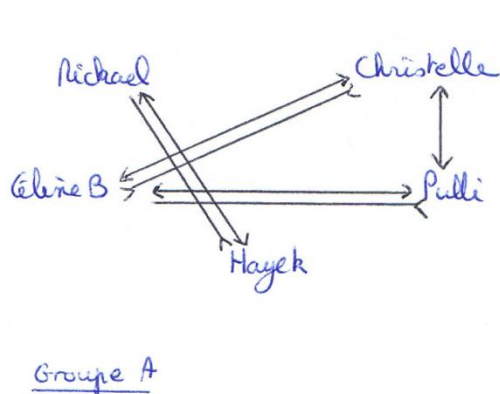 Mickael
Christelle
Céline B
Pulli
Hayek
Groupe A